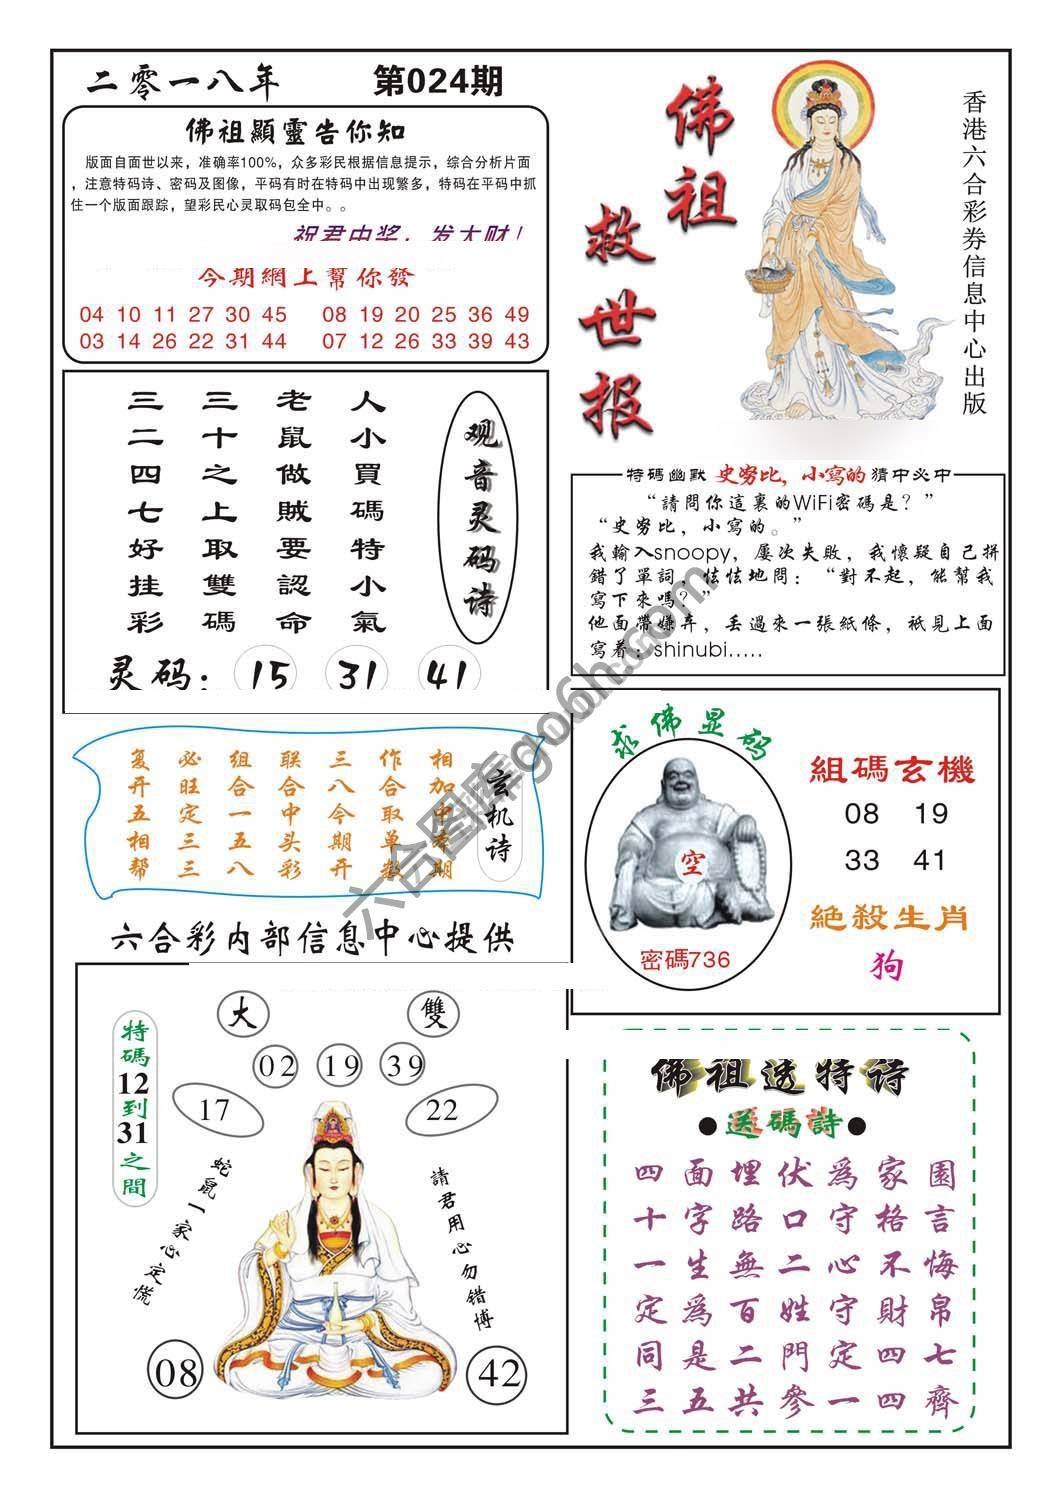 二零一八年 第024期
佛祖顯靈告你知
版面自面世以来，准确率100%，众多彩民根据信息提示，综合分析片面
，注意特码诗、密码及图像，平码有时在特码中出现繁多，特码在平码中抓
住一个版面跟踪，望彩民心灵取码包全中。。
祝君中奖，发大财！
今期網上幫你發
04 10 11 27 30 45 08 19 20 25 36 49
03 14 26 22 31 44 07 12 26 33 39 43
佛祖
救世报
香港六合彩券信息中心出版
人小買碼特小氣
老鼠做賊要認命
三十之上取雙碼
三二四七好挂彩
观音灵码诗
灵码：15 31 41
特碼幽默 史努比，小寫的 猜中必中
“請問你這裏的WiFi密碼是？”
“史努比，小寫的。”
我輸入snoopy，屢次失敗，我懷疑自己拼
錯了單詞，怯怯地問：“對不起，能幫我
寫下來嗎？”
他面帶嫌弃，丢過來一張紙條，衹見上面
寫着：shinubi.....
玄机诗
相加中本期
作合取单数
三八今期开
联合中头彩
组合一五八
必旺定三三
复开五相帮
六合彩内部信息中心提供
求佛显码
空
密碼736
組碼玄機
08 19
33 41
絕殺生肖
狗
大 雙
02 19 39
17 22
特碼12到31之間
蛇鼠一家心定慌
請君用心勿错博
08 42
佛祖透特诗
●送碼詩●
四面埋伏爲家園
十字路口守格言
一生無二心不悔
定爲百姓守財帛
同是二門定四七
三五共參一四齊
六合图库go6h.com